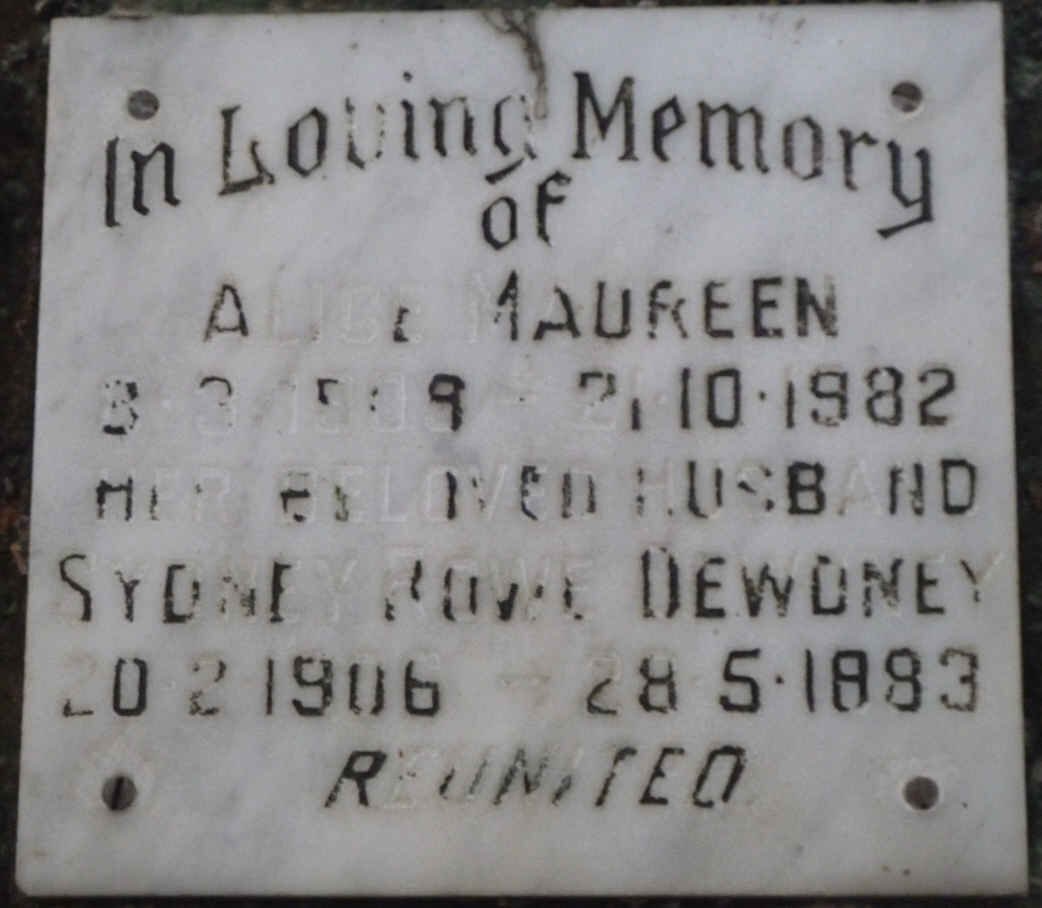 In Loving Memory
of
ALICE MAUREEN
3·3·1909 - 21·10·1982
HER BELOVED HUSBAND
SYDNEY ROWE DEWDNEY
20·2·1906 - 28·5·1983
REUNITED